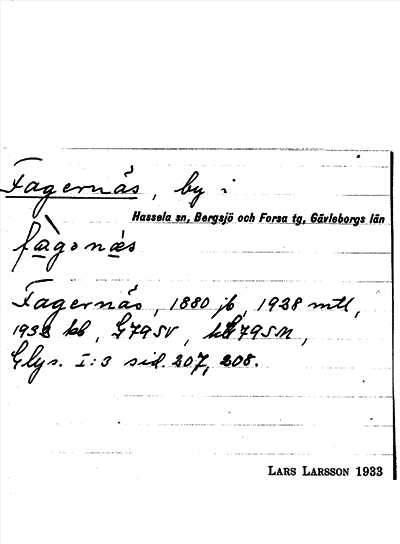 Fagernäs, by i
Hassela sn, Bergsjö och Forsa tg, Gävleborgs län
fàgənæs
Fagernäs, 1880 jb, 1928 mtl,
1932 kb, G795V, hG795N,
Glys. I:3 sid. 207, 208.
LARS LARSSON 1933